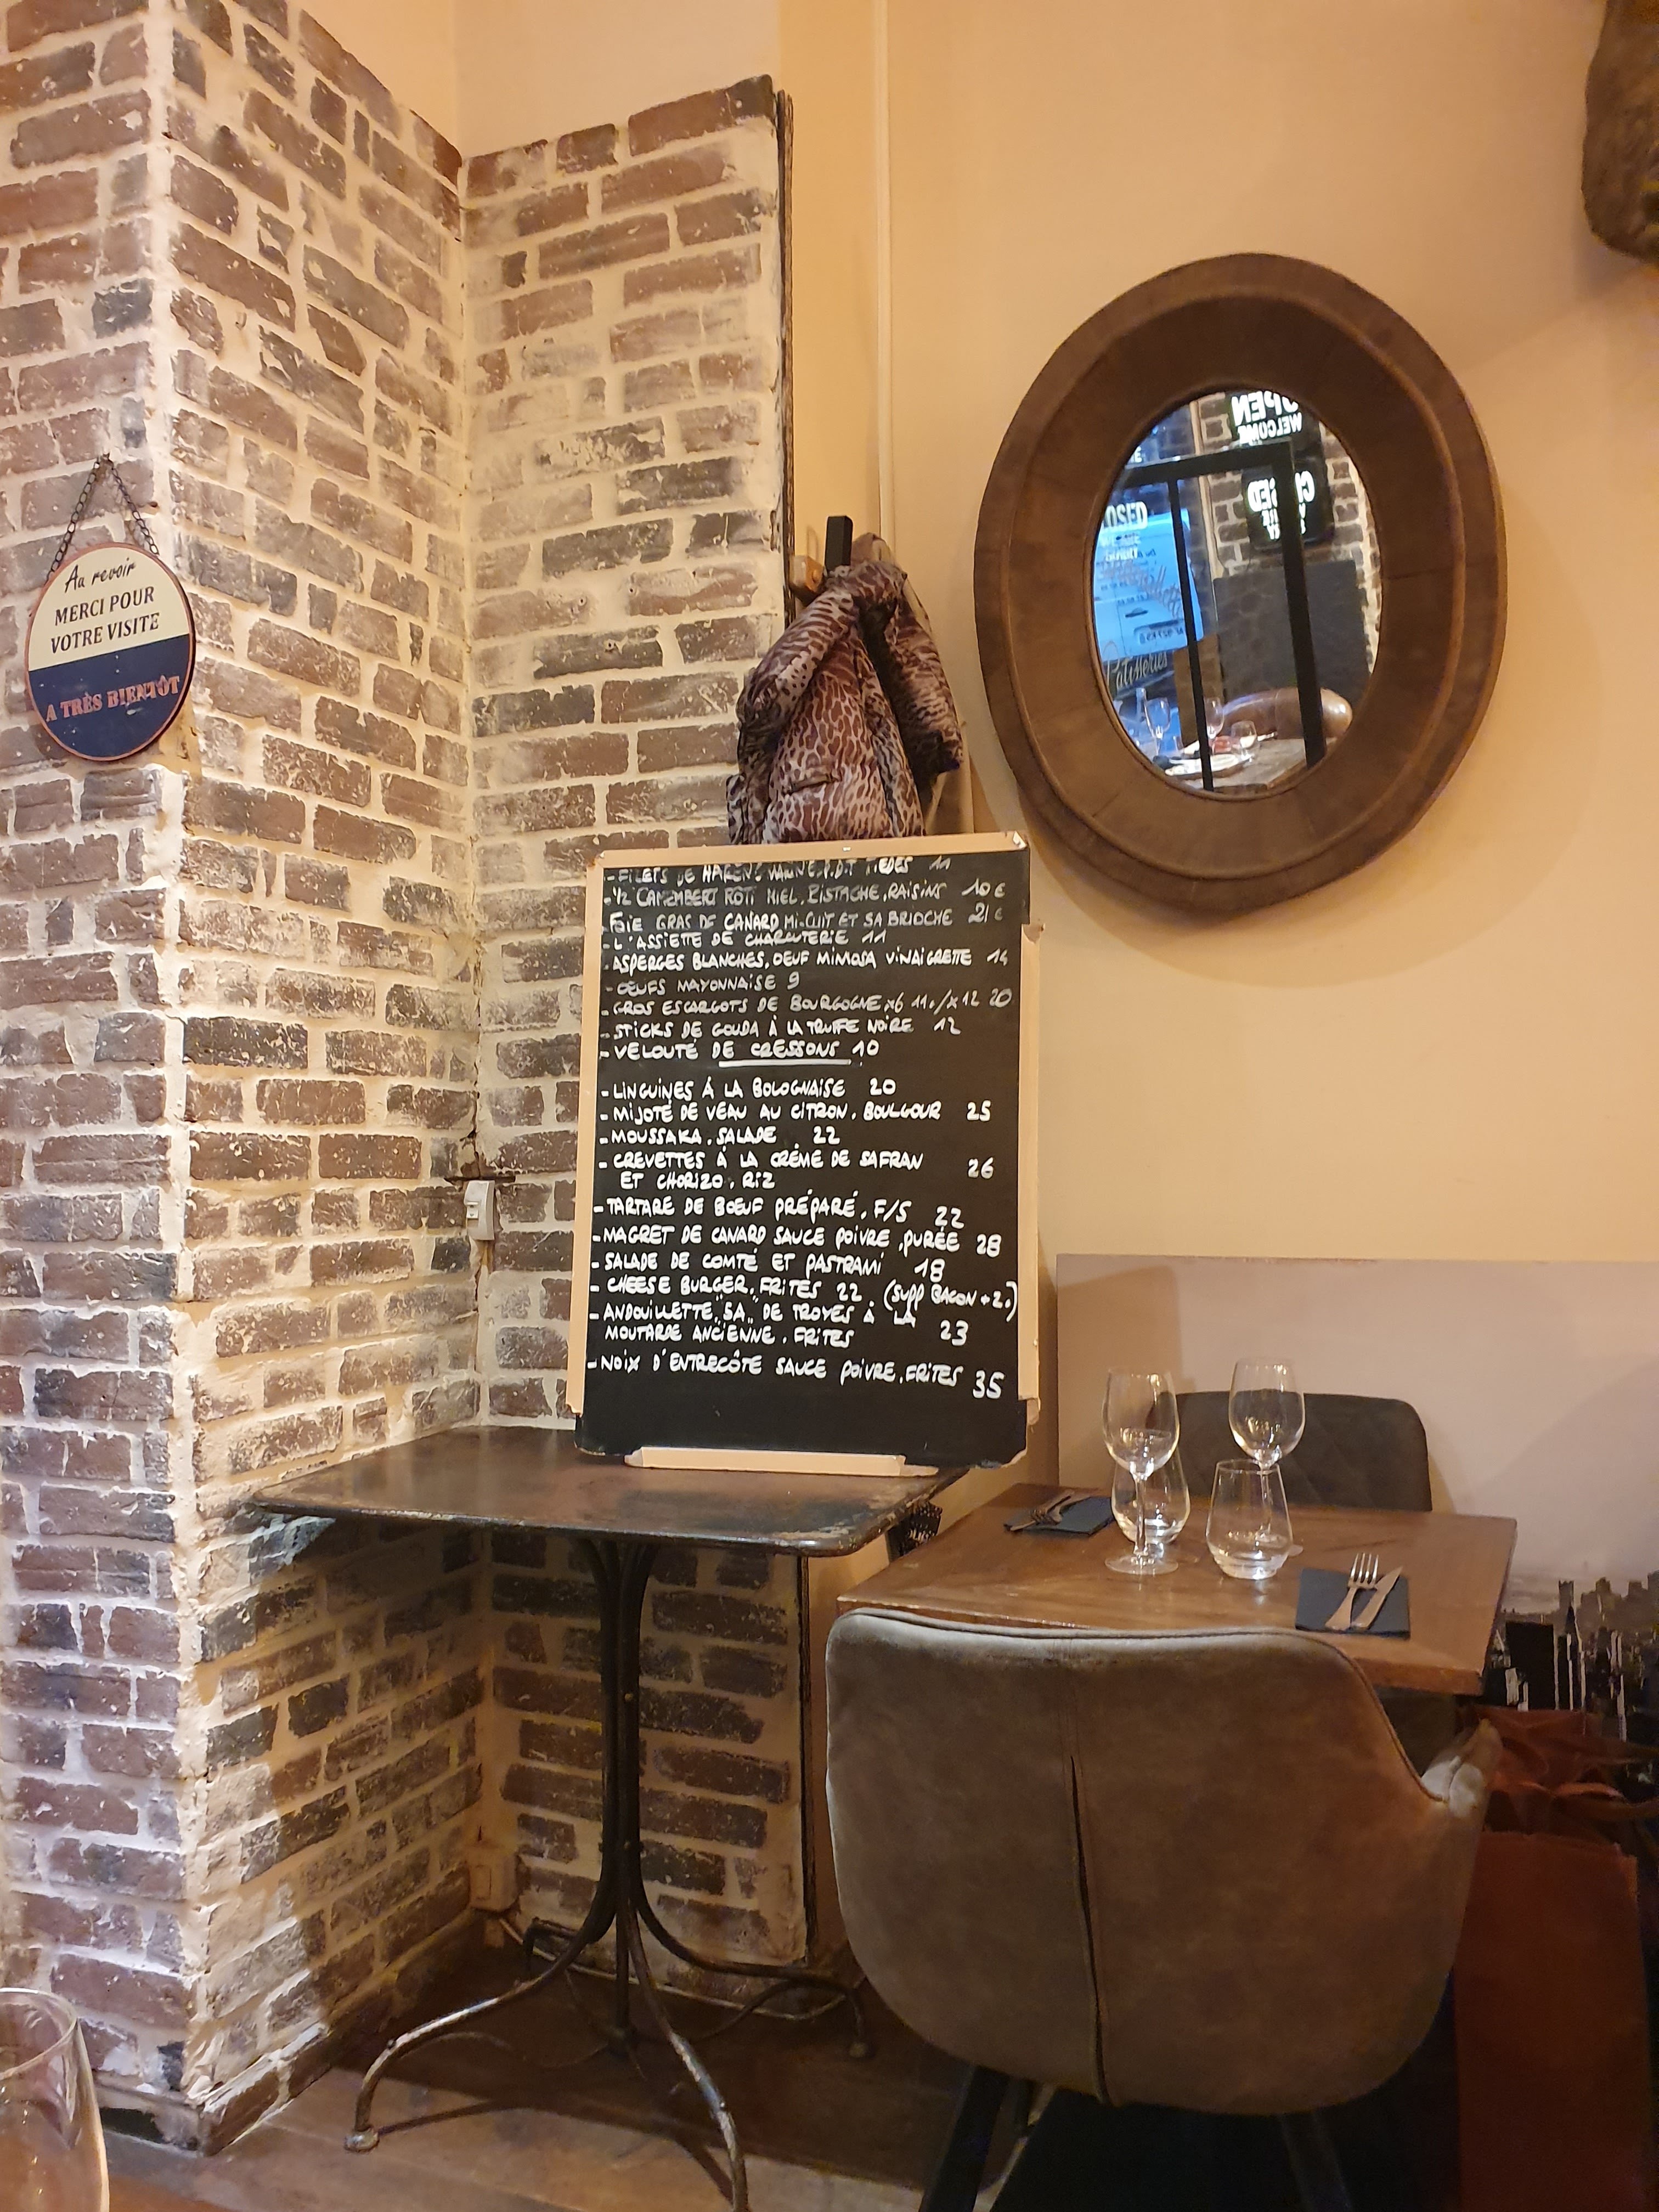 Au revoir
MERCI POUR
VOTRE VISITE
A TRÈS BIENTÔT
OPEN
WELCOME
CLOSED
Patisseries
- FILETS DE HARENG MARINÉ, P.D.T TIEDES 11
- 1/2 CAMEMBERT RÔTI MIEL, PISTACHE, RAISINS 10 €
FOIE GRAS DE CANARD MI-CUIT ET SA BRIOCHE 21 €
- L'ASSIETTE DE CHARCUTERIE 11
- ASPERGES BLANCHES, OEUF MIMOSA VINAIGRETTE 14
- OEUFS MAYONNAISE 9
- GROS ESCARGOTS DE BOURGOGNE x6 11./x12 20
- STICKS DE GOUDA À LA TRUFFE NOIRE 12
- VELOUTÉ DE CRESSONS 10
- LINGUINES Á LA BOLOGNAISE 20
- MIJOTÉ DE VEAU AU CITRON, BOULGOUR 25
- MOUSSAKA, SALADE 22
- CREVETTES À LA CRÉME DE SAFRAN 26
ET CHORIZO, RIZ
- TARTARE DE BOEUF PRÉPARÉ, F/S 22
- MAGRET DE CANARD SAUCE POIVRE, PURÉE 28
- SALADE DE COMTÉ ET PASTRAMI 18
- CHEESE BURGER, FRITES 22 (SUPP BACON +2.)
- ANDOUILLETTE "5A" DE TROYES À LA
MOUTARDE ANCIENNE, FRITES 23
- NOIX D'ENTRECÔTE SAUCE POIVRE, FRITES 35